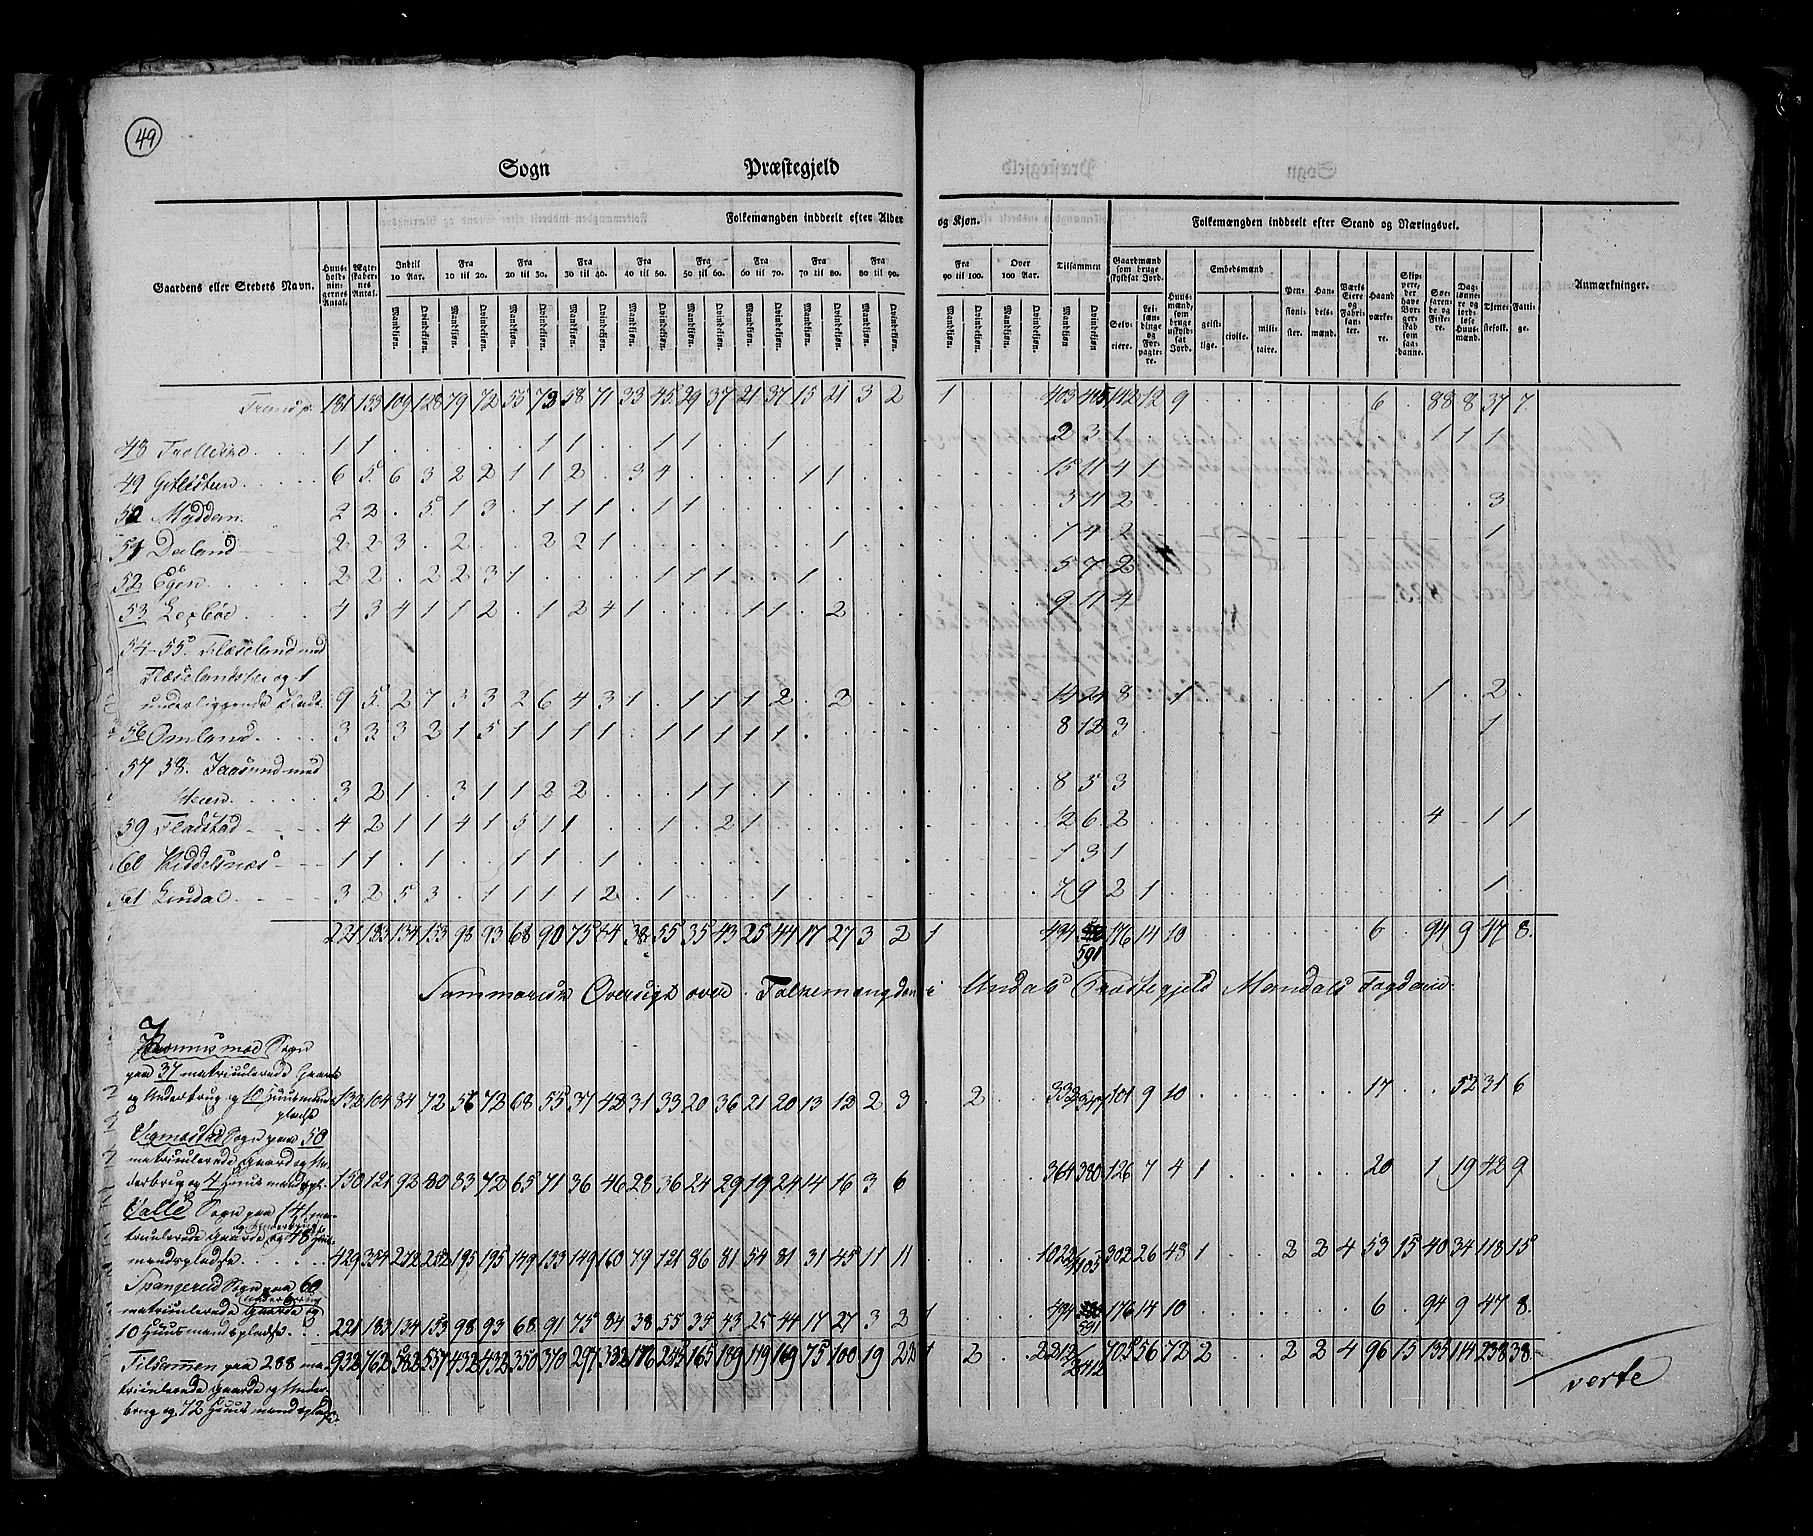 49
Sogn Præstegjeld
Gaardens eller Stedets Navn.
Huus-holdnin-gernes Antal.
Ægte-skaber-nes Antal.
Folkemængden inddeelt efter Alder og Kjøn.
Indtil 10 Aar. Fra 10 til 20. Fra 20 til 30. Fra 30 til 40. Fra 40 til 50. Fra 50 til 60. Fra 60 til 70. Fra 70 til 80. Fra 80 til 90. Fra 90 til 100. Over 100 Aar. Tilsammen
Mandkjøn. Qvindekjøn.
Folkemængden inddeelt efter Stand og Næringsvei.
Gaardmænd som bruge skyldsat Jord.
Selv-eiere. Lei-lændinge og For-pagte-re.
Huus-mænd, som bruge uskyld-sat Jord.
Embedsmænd
geist-lige. civile. mili-taire.
Pen-sioni-ster. Han-dels-mænd. Værks Eiere og Fabri-kan-ter. Haand værke-re. Skip-pere, der have Bor-ger-skab som saa-danne. Søe-faren-de og Fiske-re. Dag-lønne-re og jord-løse Huus-mænd. Tjene-stefolk. Fatti-ge.
Anmærkninger.
Transp. 181 153 109 128 79 72 55 73 58 71 33 45 29 37 21 37 15 21 3 2 1 403 485 142 12 9 6 88 8 37 7
48 1 1 1 1 1 1 1 2 3 1 1 1 1
49 6 5 6 3 2 2 1 1 2 3 4 1 1 15 11 4 1
50 2 2 5 1 3 1 1 1 1 1 3 11 2 3
51 2 2 3 2 2 2 1 1 7 4 2 1
52 Egen 2 2 2 2 3 1 1 1 1 1 5 7 2
53 4 3 4 1 1 2 1 2 4 1 1 1 2 9 11 4
54-55 Flæseland med
underliggende Plads 9 5 2 7 3 3 2 6 4 3 1 1 1 1 2 2 14 24 8 1 1 2
56 Omland 3 3 3 2 1 5 1 1 1 1 1 1 1 1 1 8 12 3 1
57 58 Jaasund med
3 2 1 3 1 1 2 2 1 1 1 8 5 3
59 Fladstad 4 2 1 1 4 1 5 1 1 1 2 1 12 6 2 4 1 1
60 1 1 1 1 1 1 1 3 1
61 Lindal 3 2 5 3 1 1 1 1 2 1 1 7 9 2 1 1
221 183 134 153 98 93 68 90 75 84 38 55 35 43 25 44 17 27 3 2 1 494 591 176 14 10 6 94 9 47 8
Summarisk Oversigt over Folkemængden i Undals Præstegjeld Mandals Fogderie
Sogn
paa 37 matriculerede Gaarde
og Underbrug og 10 Huusmands
pladse 132 104 84 72 56 72 68 55 37 42 31 33 20 36 21 20 13 12 2 3 2 332 347 101 9 10 17 52 31 6
Vigmostad Sogn paa 50
matriculerede Gaarde og Un-
derbrug og 4 Huusmandspl. 150 121 92 80 83 72 65 71 36 46 28 36 24 29 19 24 14 16 3 6 364 380 126 7 4 1 20 1 19 42 9
Valle Sogn paa 141 ma-
triculerede Gaarde og Underbrug og 48 Huus-
mandspladse 429 354 272 252 195 195 149 153 149 160 79 121 86 81 54 81 31 45 11 11 1022 1103 302 26 48 1 2 2 4 53 15 40 34 118 15
Spangereid Sogn paa 60
matriculerede Gaarde og Underbrug
10 Huusmandspladse 221 183 134 153 98 93 68 91 75 84 38 55 35 43 25 44 17 27 3 2 1 494 591 176 14 10 6 94 9 47 8
Tilsammen paa 288 ma- 932 762 582 557 432 432 350 370 297 332 176 245 165 189 119 169 75 100 19 22 1 2 2212 2412 705 56 72 2 2 2 4 96 15 135 114 238 38
triculerede Gaarde og Under-
brug og 72 Huusmandspladse
verte